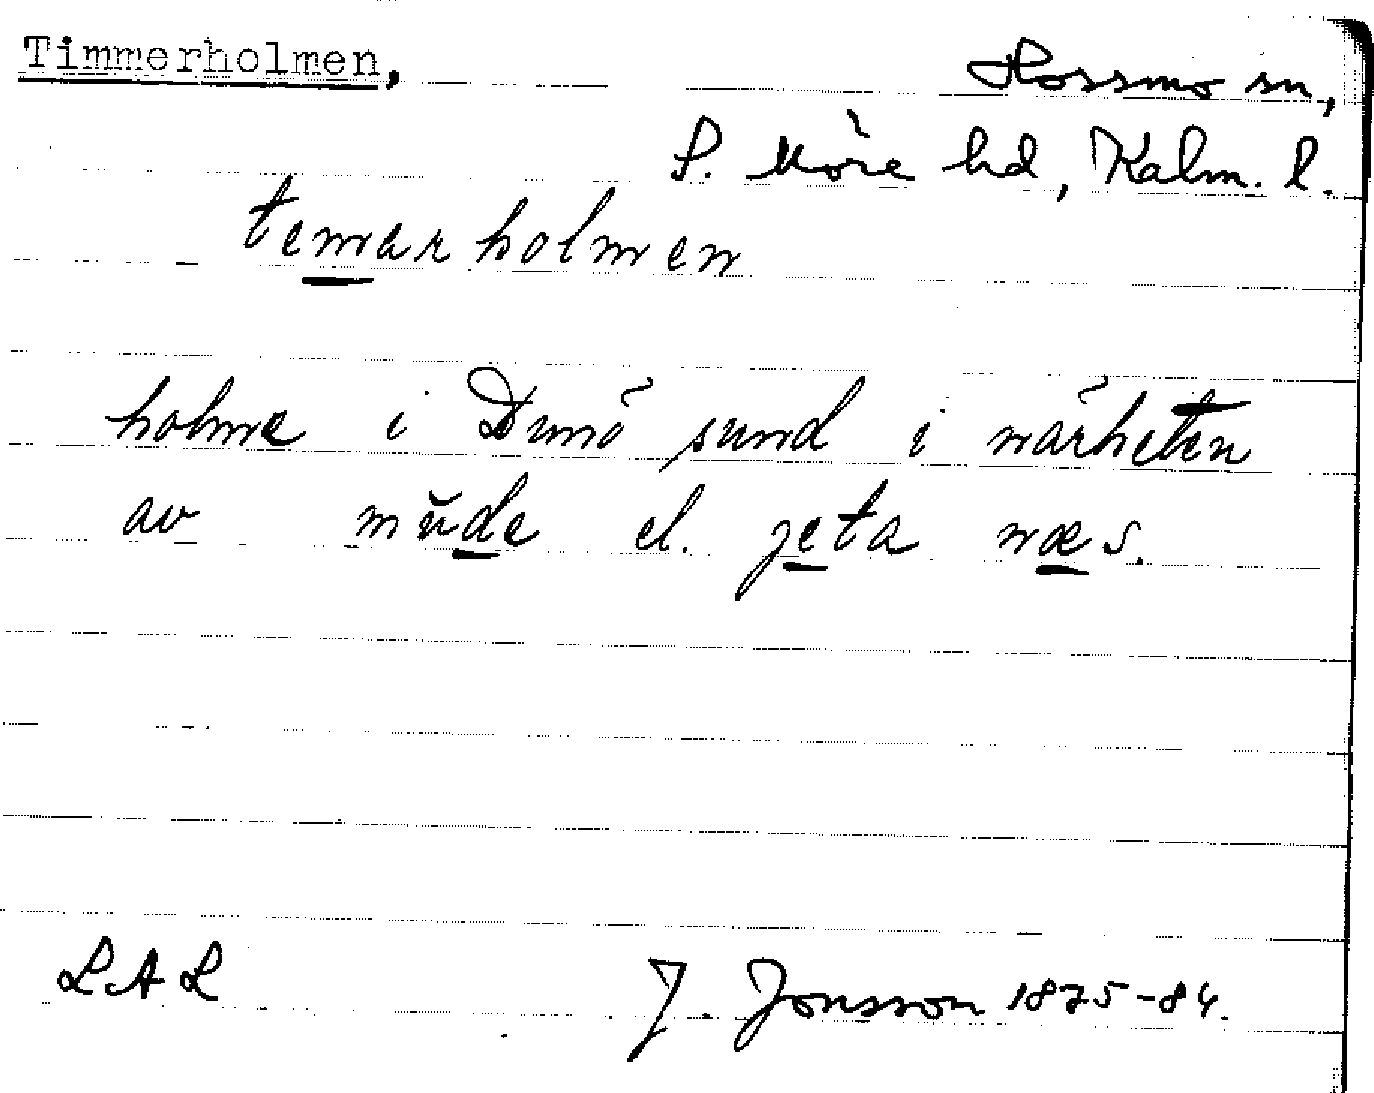 Timmerholmen, Hossmo sn,
S. Möre hd, Kalm. l.
temarholmen
holme i Dunö sund i närheten
av mŭde el. jeta næs.
LAL J. Jonsson 1875-84.